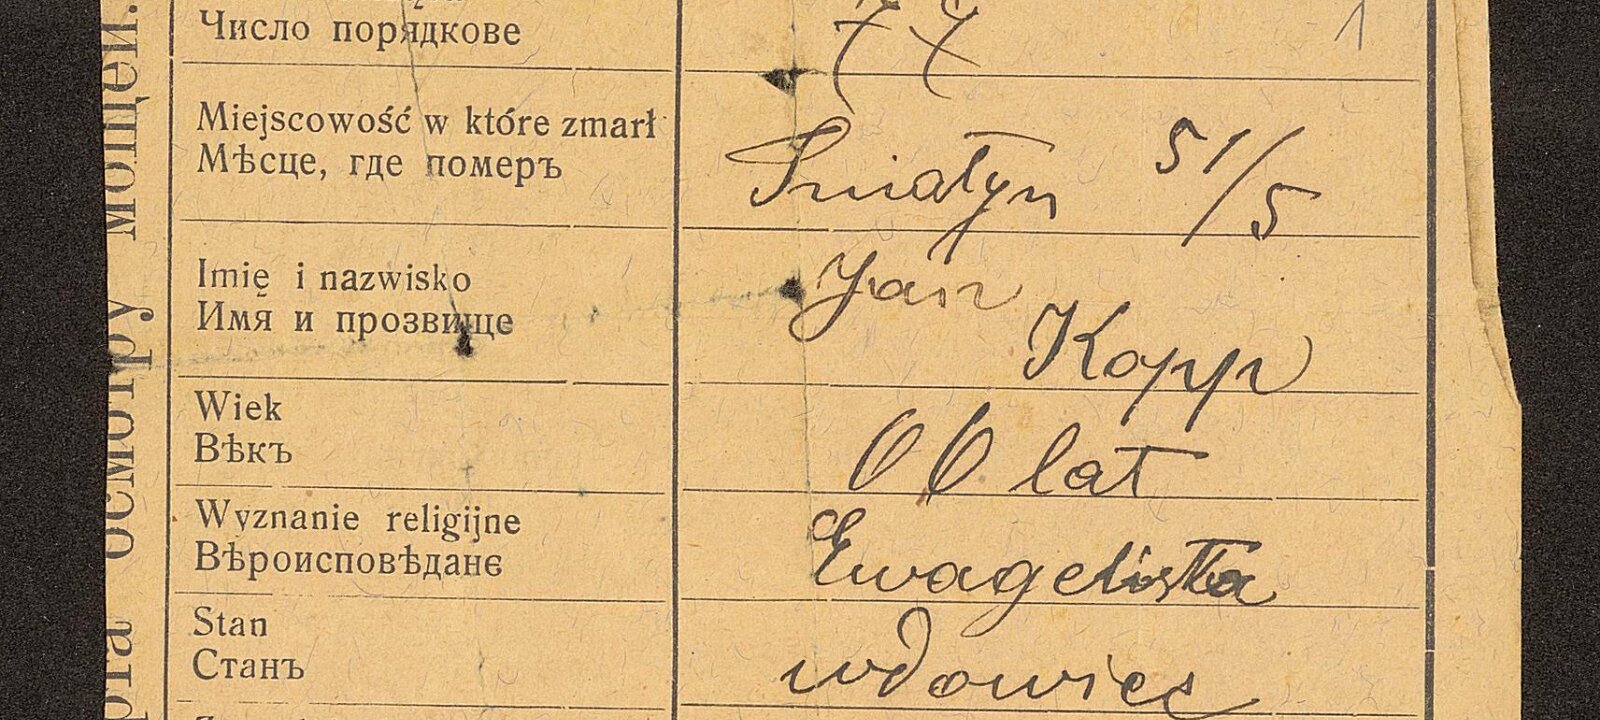 Число порядкове 77 1
Miejscowość w które zmarł
Мѣсце, где померъ
Śniatyn 51/5
Imię i nazwisko
Имя и прозвище
Jan
Kopp
Wiek
Вѣкъ
66 lat
Wyznanie religijne
Вѣроисповѣданє
Ewagelista
Stan
Станъ
wdowiec
рта осмотру мощей.